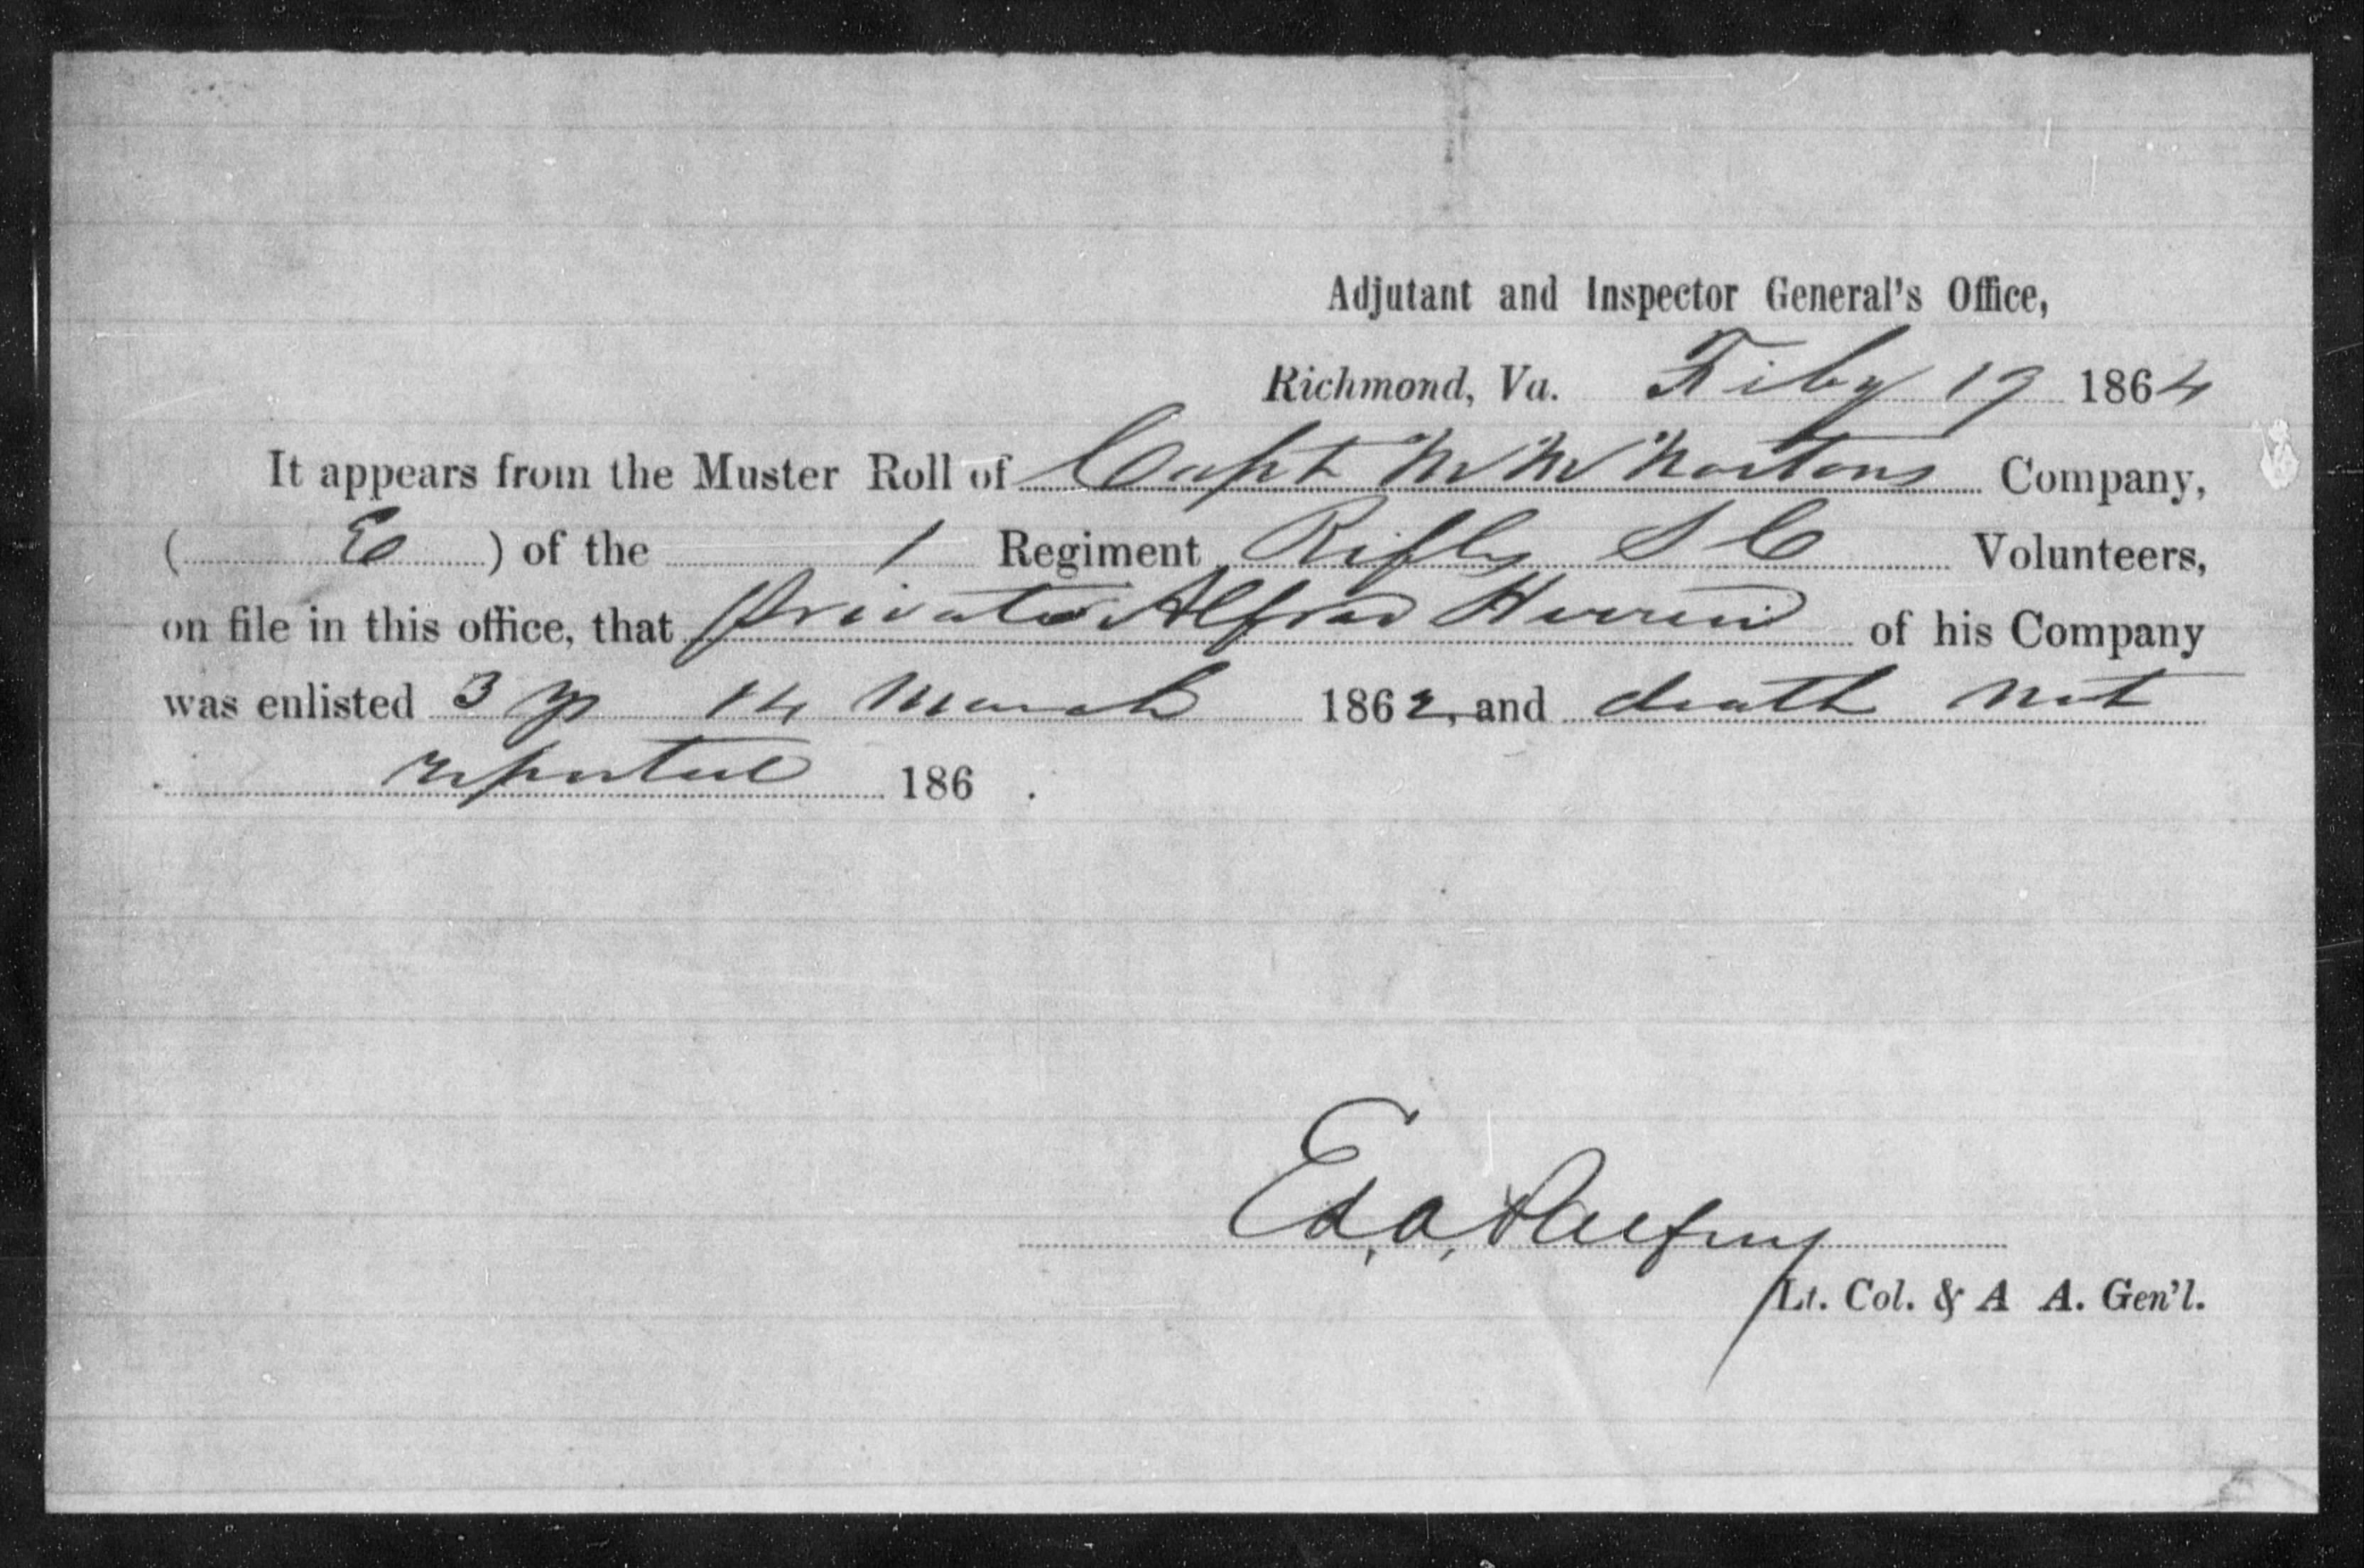 Adjutant and Inspector General's Office,
Richmond, Va. Feby 19 1864
It appears from the Muster Roll of Capt M M Nortons Company,
( E ) of the 1 Regiment Rifles S C Volunteers,
on file in this office, that private Alfred Herren of his Company
was enlisted 3 yr 14 March 1862, and death not
reported 186 .
Ed. A. Palfrey
Lt. Col. & A A. Gen'l.